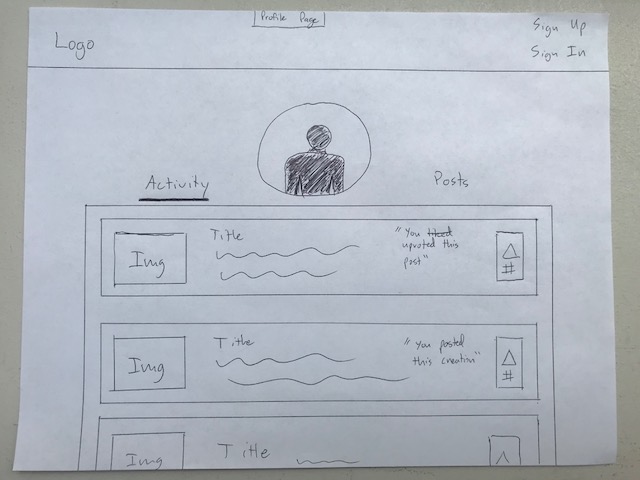 Profile Page
Logo
Sign Up
Sign In
Activity
Posts
Img
Title
"You upvoted this
post"
#
Img
Title
"You posted
this creation"
#
Img
Title